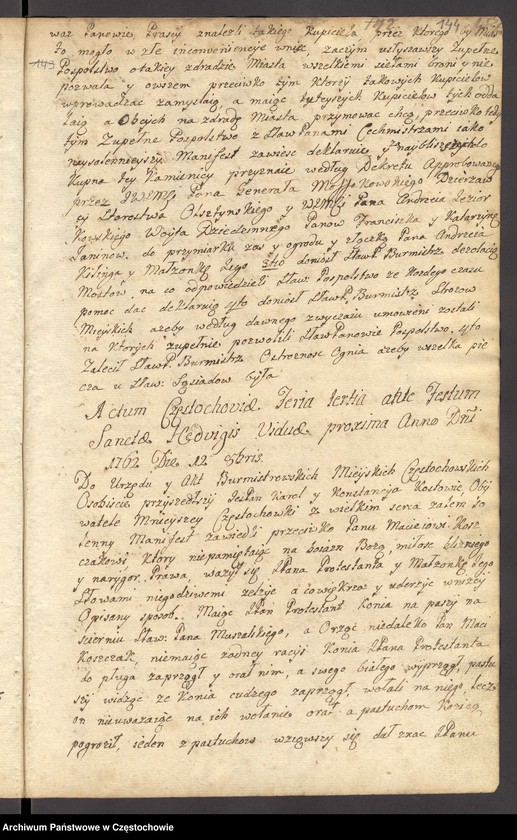 142 144
143
waz Panowie Prasyj znalezli takiego Kupiciela przez ktorego by Miast
to mogło w złe inconveniencye wnisc, zaczym usłyszawszy Zupełne
Pospolstwo o takiey zdradzie Miasta wszelkiemi siełami broni y nie
pozwala y owszem przeciwko tym ktorzy takowych Kupicielow
wprowadzac zamyslaią, a maiąc tuteyszych Kupicielow tych odda
laią a Obcych na zdradę Miasta przymowac chcą, przeciwko tedy
tym Zupełne Pospolstwo z Sław Panami Cechmistrzami iako
naysolenneyszy Manifest zawiesc deklaruie,
Kupna tey Kamienicy przyznaie według Dekretu Approbowanego
przez JWJMci Pana Generała Dzierzaw
cę Starostwa Olsztynskiego y WJMci Pana Andrzeia Jezior
Kowskiego Woyta Dziedzicznego Panow Franciszka y Katarzynę
Janinow. do przymiarka zas y ogrodu y Łączkę Pana Andrzeia
Kislinga y Małzonkę Jego 3tio doniosł Sławt. Burmistrz dezolacią
Mostow, na co odpowiedzieli Sław. Pospolstwo ze Kozdego czasu
pomoc dac deklaruią 4to doniosł Sławt. Burmistrz Strozow
Mieyskich azeby według dawnego zwyczaiu umowieni zostali
na ktorych zupełnie pozwolili Sław Panowie Pospolstwo, 5to
Zalecił Sławt. Burmistrz Ostroznosc Ognia azeby wszelka pie
cza u Sław: Sąsiadow była
Actum Częstochoviæ Feria tertia ante Festum
Sanctæ Hedvigis Viduæ proxima Anno Dni
1762 Die 12 8bris.
Do Urzędu y Akt Burmistrowskich Mieyskich Częstochowskich
Osobiscie przyszedłszy Jstan Karol y Konstancja Kostowie, Oby
watele Mnieyszey Częstochowki z wielkim serca zalem So
lenny Manifest zawiedli przeciwko Panu Macieiowi Kosz
czakowi Ktory niepamiętaiąc na boiazn Bozą miłosc bliznego
y na rygor Prawa, wazył się JPana Protestanta y Małzonkę Jego
Słowami niegodziwemi zelzyc a cowiększa y uderzyc w nizey
Opisany sposob. Maiąc JPan Protestant Konia na paszy na
scierniu Sław: Pana Muszalskiego, a Orząc niedaleko Pan Maci
Koszczak, niemaiąc zadney racyi Konia JPana Protestanta
do pługa zaprzągł y orał nim, a swego białego wyprzągł, pastu
szy widząc ze Konia cudzego zaprzągł, wołali na niego lecz
on nieuwazaiąc na ich wołanie orał a pastuchom
pogroził, ieden z pastuchow wziąwszy się dał znac JPanu
Archiwum Państwowe w Częstochowie